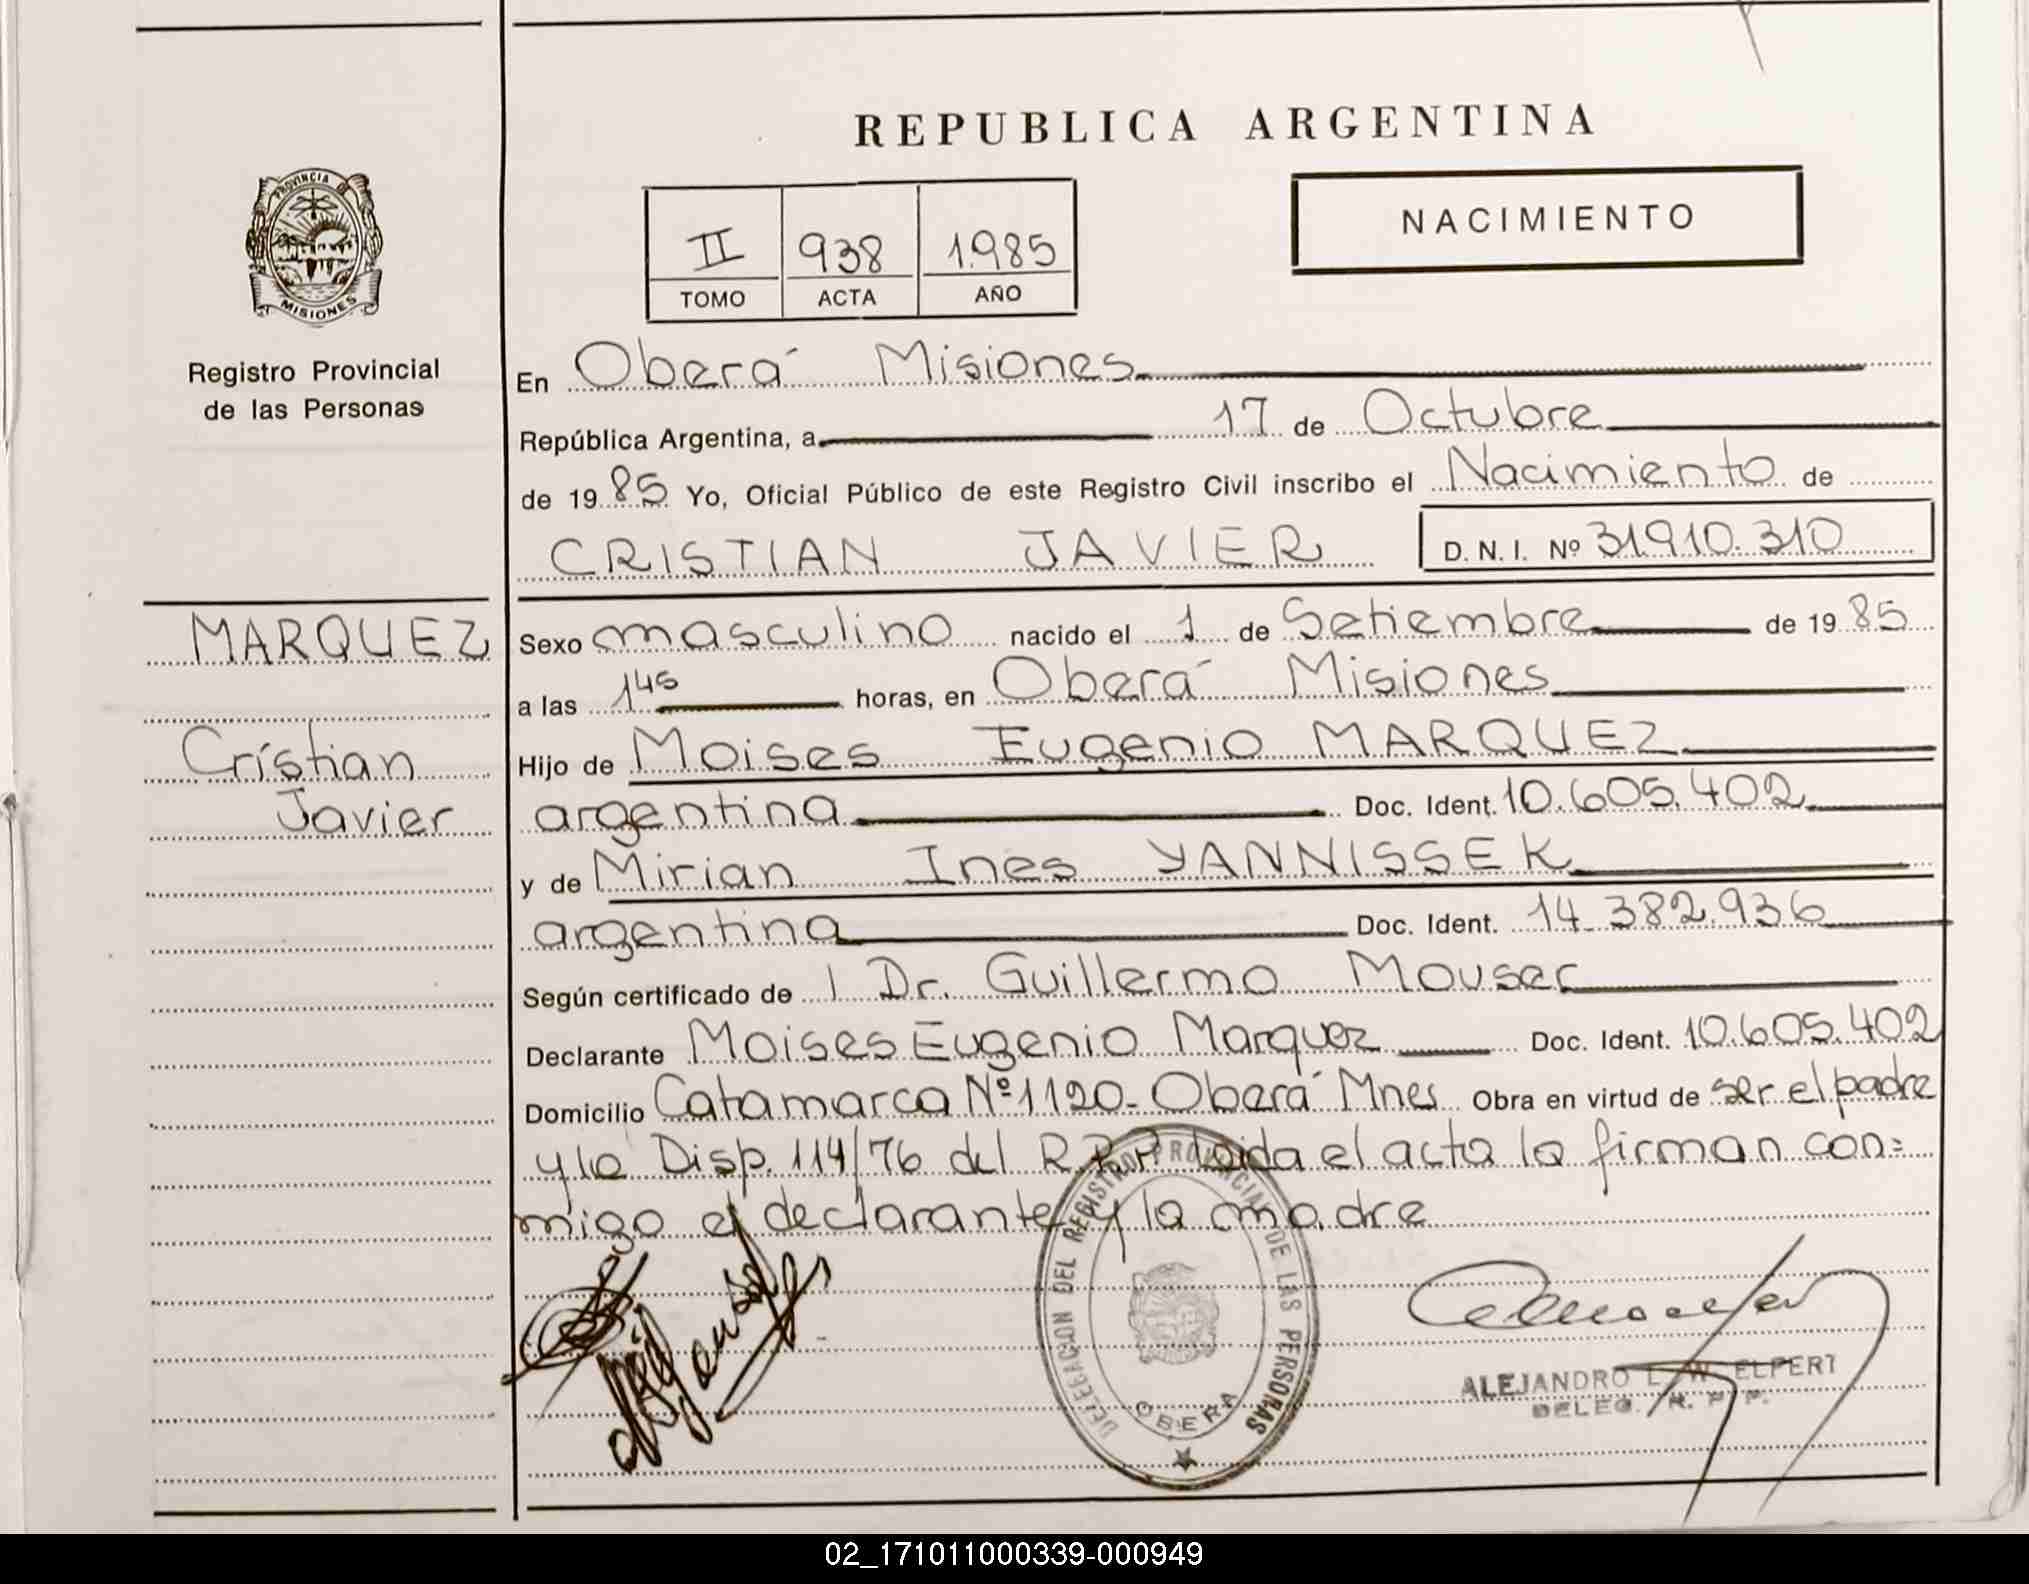 REPUBLICA ARGENTINA
PROVINCIA DE
MISIONES
Registro Provincial
de las Personas
II 938 1.985
TOMO ACTA AÑO
NACIMIENTO
En Oberá Misiones
República Argentina, a 17 de Octubre
de 19 85 Yo, Oficial Público de este Registro Civil inscribo el Nacimiento de
CRISTIAN JAVIER D. N. I. Nº 31.910.310
MARQUEZ
Cristian
Javier
Sexo masculino nacido el 1 de Setiembre de 19 85
a las 1 45 horas, en Oberá Misiones
Hijo de Moises Eugenio MARQUEZ
argentina Doc. Ident. 10.605.402
y de Mirian Ines YANNISSEK
argentina Doc. Ident. 14.382.936
Según certificado de l Dr. Guillermo Mouser
Declarante Moises Eugenio Marquez Doc. Ident. 10.605.402
Domicilio Catamarca Nº 1120- Oberá Mnes Obra en virtud de ser el padre
y la Disp. 114/76 del R.P.P. Leida el acta la firman con=
migo el declarante y la madre
DELEGACION DEL REGISTRO PROVINCIAL DE LAS PERSONAS
OBERA
ALEJANDRO L. W. ELPERT
DELEG. R. P. P.
02_171011000339-000949